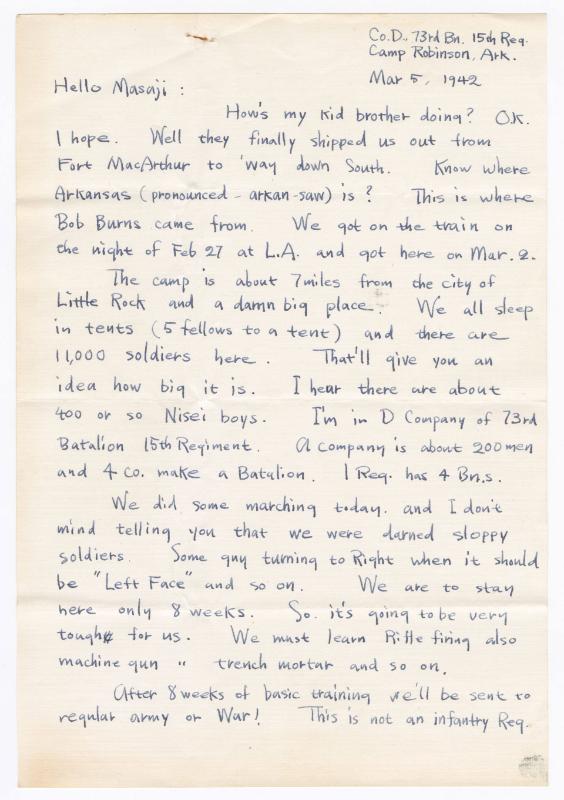 Co.D., 73rd Bn. 15th Reg.
Camp Robinson, Ark.
Mar 5, 1942
Hello Masaji :
How's my kid brother doing? O.K.
I hope. Well they finally shipped us out from
Fort MacArthur to 'way down South. Know where
Arkansas (pronounced - arkan-saw) is? This is where
Bob Burns came from. We got on the train on
the night of Feb 27 at L.A. and got here on Mar. 2.
The camp is about 7 miles from the city of
Little Rock and a damn big place. We all sleep
in tents (5 fellows to a tent) and there are
11,000 soldiers here. That'll give you an
idea how big it is. I hear there are about
400 or so Nisei boys. I'm in D Company of 73rd
Batalion 15th Regiment. A company is about 200 men
and 4 co. make a Batalion. 1 Reg. has 4 Bn.s.
We did some marching today. and I don't
mind telling you that we were darned sloppy
soldiers. Some guy turning to Right when it should
be "Left Face" and so on. We are to stay
here only 8 weeks. So. it's going to be very
tough for us. We must learn Rifle firing also
machine gun " trench mortar and so on.
After 8 weeks of basic training we'll be sent to
regular army or War! This is not an infantry Reg.